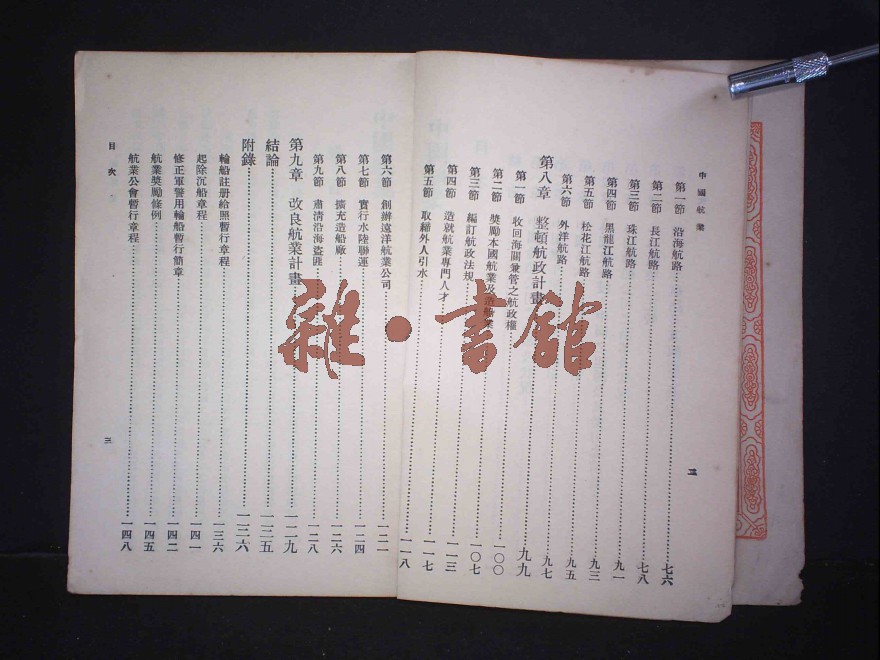 中國航業
第一節 沿海航路 七六
第二節 長江航路 七八
第三節 珠江航路 九一
第四節 黑龍江航路 九三
第五節 松花江航路 九五
第六節 外洋航路 九七
第八章 整頓航政計畫 九九
第一節 收回海關兼管之航政權 一〇〇
第二節 獎勵本國航業及造船業 一〇七
第三節 編訂航政法規 一一三
第四節 造就航業專門人才 一一七
第五節 取締外人引水 一一八
二
第六節 創辦遠洋航業公司 一二一
第七節 實行水陸聯運 一二四
第八節 擴充造船廠 一二六
第九節 肅清沿海盜匪 一二八
第九章 改良航業計畫 一二九
結論 一三五
附錄 一三六
輪船註册給照暫行章程 一三六
起除沉船章程 一四一
修正軍警用輪船暫行簡章 一四二
航業獎勵條例 一四五
航業公會暫行章程 一四八
目次
三
雜·書館